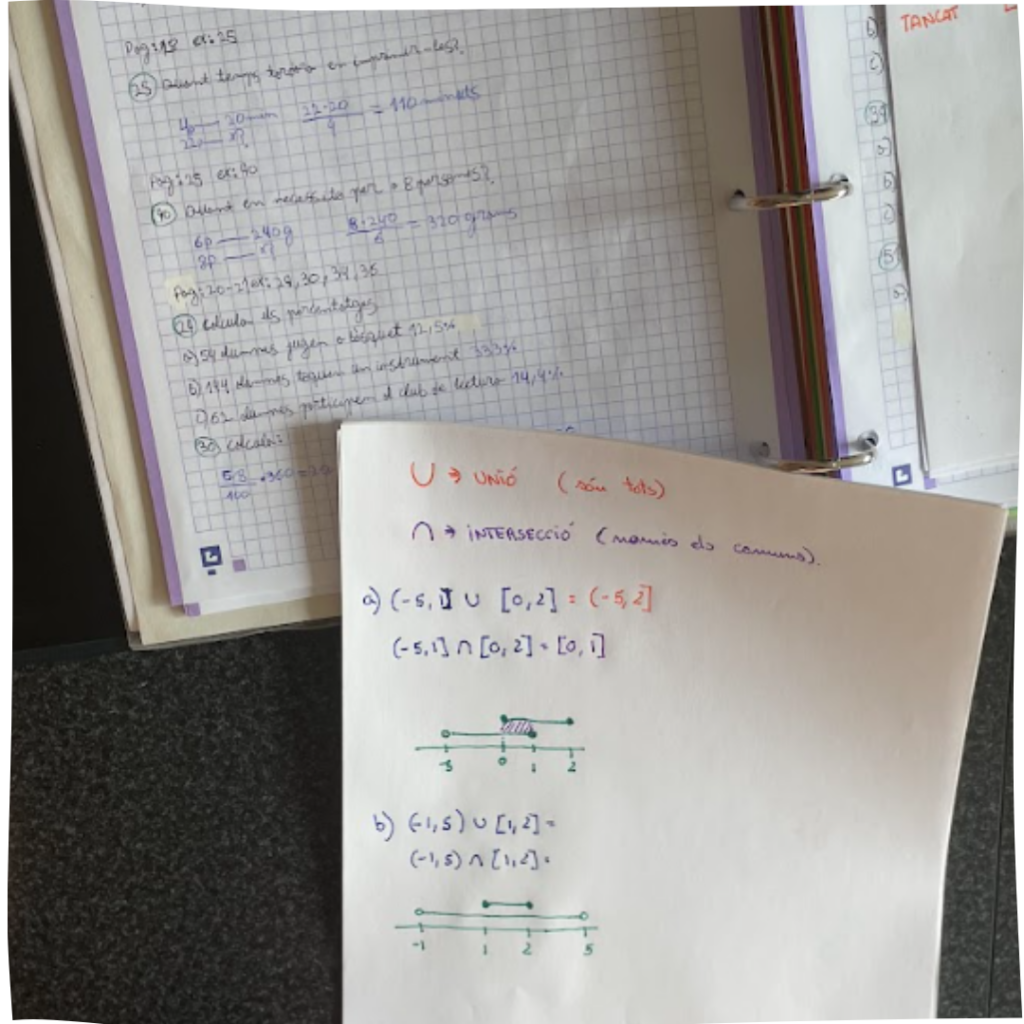 Pag: 19 ex: 25
25 Quant temps tardarà en imprimir-les?
4p — 20 min
22p — x?
22·20 / 4 = 110 minuts
Pag: 25 ex: 40
40 Quant en necessita per a 8 persones?
6p — 240g
8p — x?
8·240 / 6 = 320 grams
29 Calcula els percentatges
a) 54 alumnes juguen a bàsquet 12,5%
b) 144 alumnes toquen un instrument
c) 62 alumnes participen al club de lectura 14,4%
30 Calcula:
TANCAT
b)
c)
a)
b)
c)
a)
U → UNIÓ (són tots)
∩ → INTERSECCIÓ (només els comuns).
a) (-5, 1] ∪ [0, 2] = (-5, 2]
(-5, 1] ∩ [0, 2] = [0, 1]
-5 0 1 2
b) (-1, 5) ∪ [1, 2] =
(-1, 5) ∩ [1, 2] =
-1 1 2 5